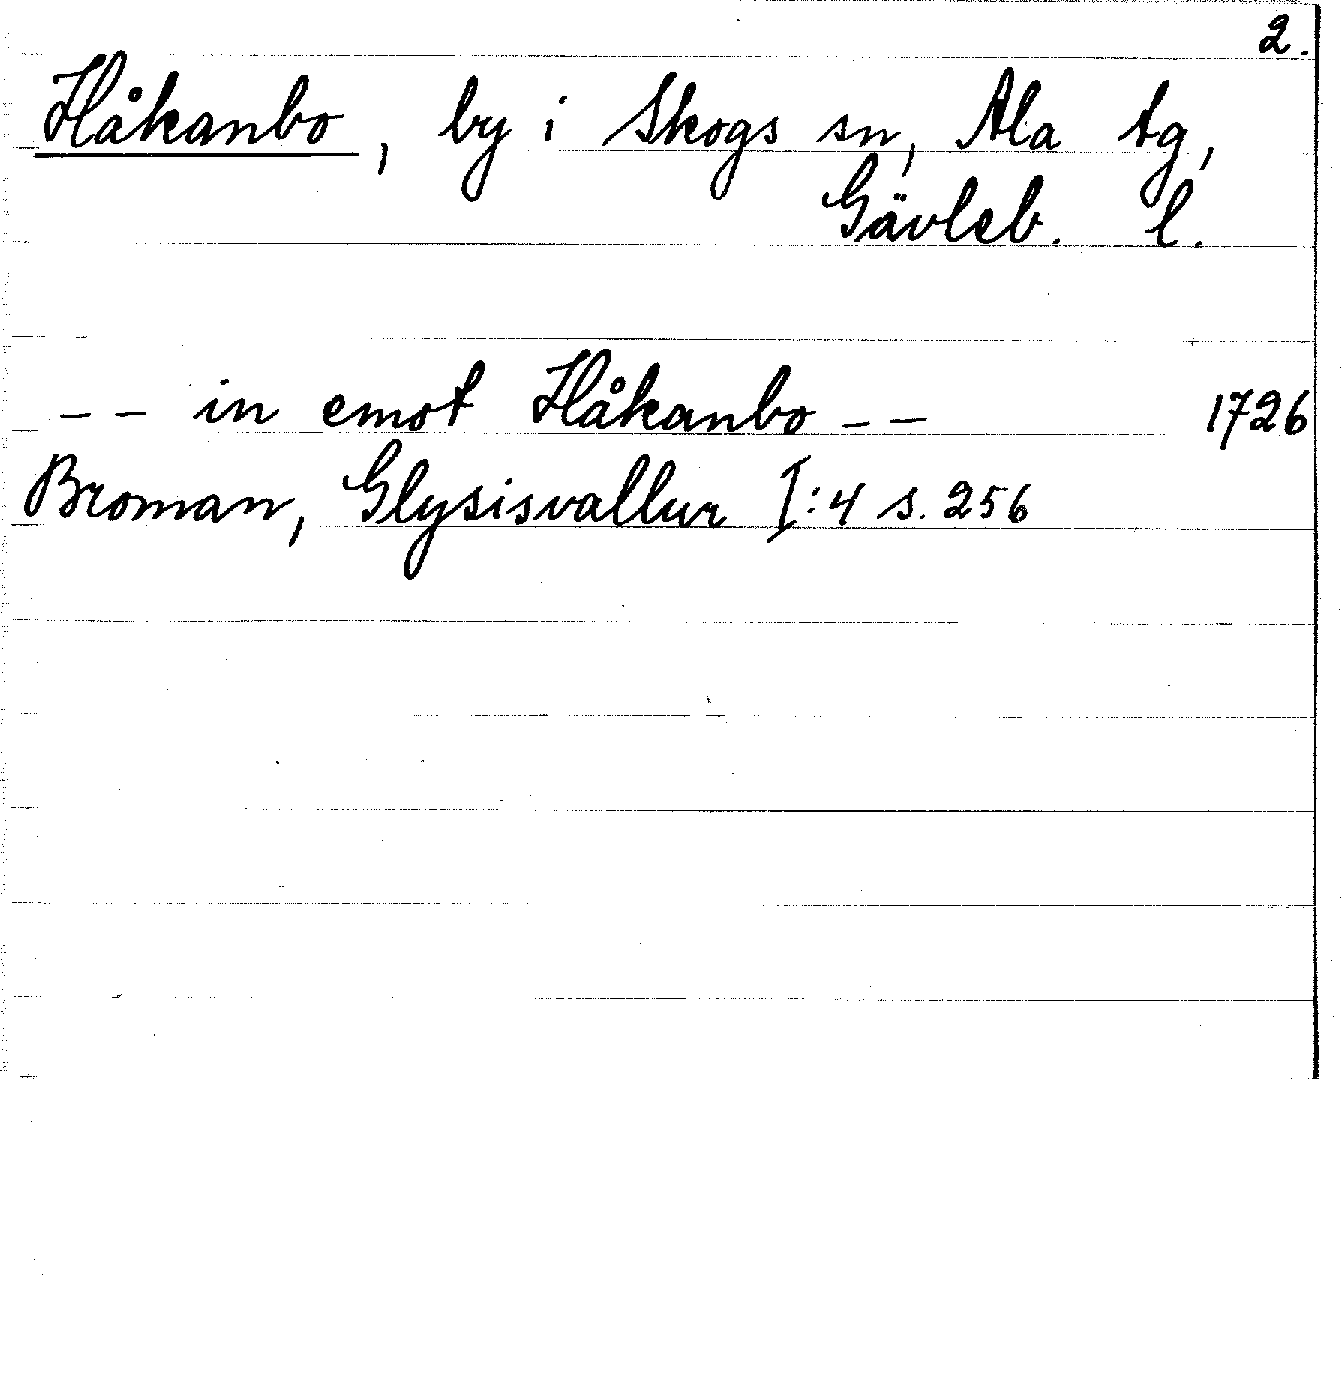 2.
Håkanbo, by i Skogs sn, Ala tg,
Gävleb. l.
-- in emot Håkanbo -- 1726
Broman, Glysisvallur I:4 s. 256